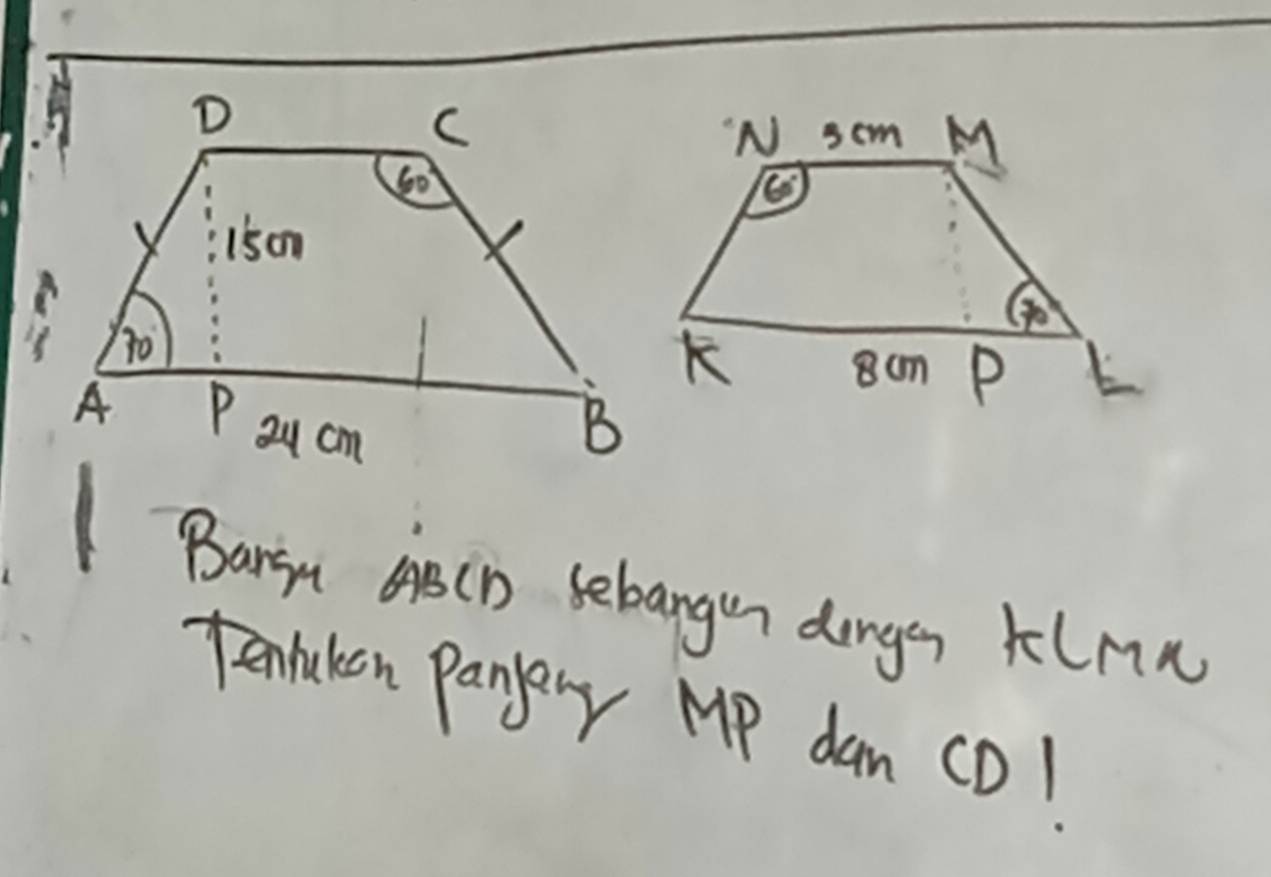 D C N 5 cm M
60° 60°
15 cm
70° 70°
A P 24 cm B K 8 cm P L
Bangu ABCD sebangun dengan KLMN
Tentukan Panjang MP dan CD!